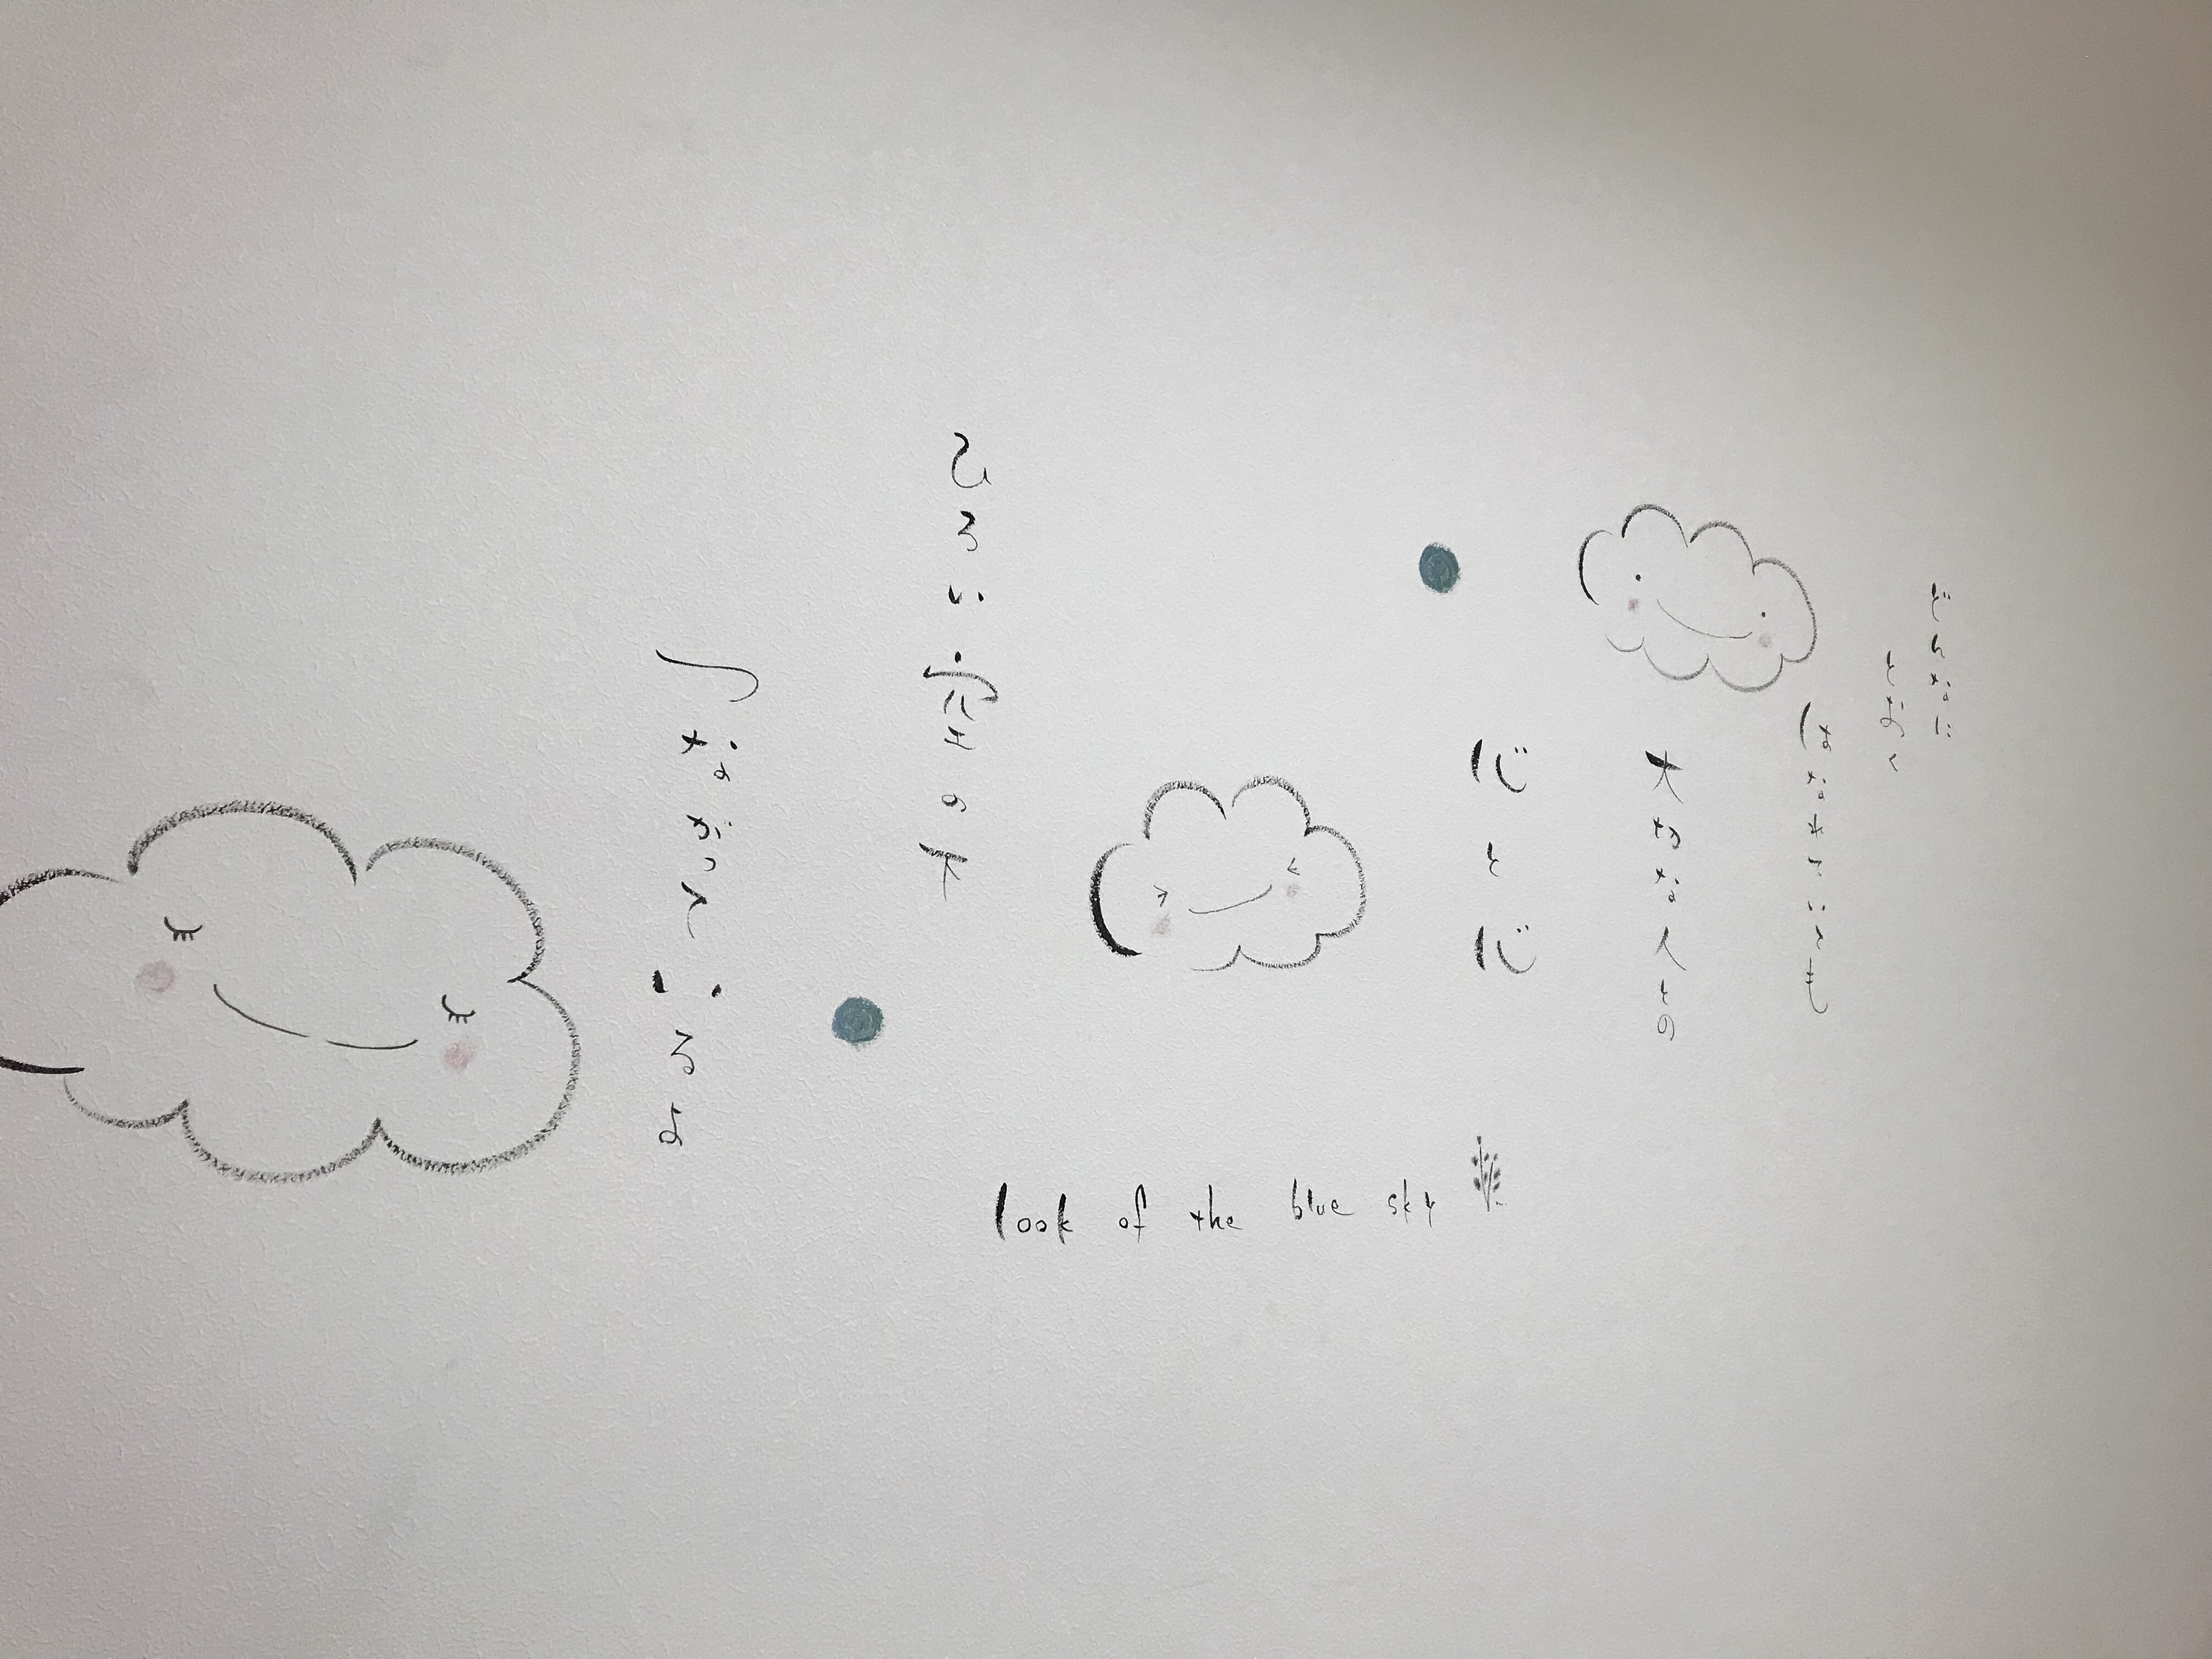 どんなに
とおく
はなれていても
大切な人との
心と心
ひろい空の下
つながっているよ
look of the blue sky